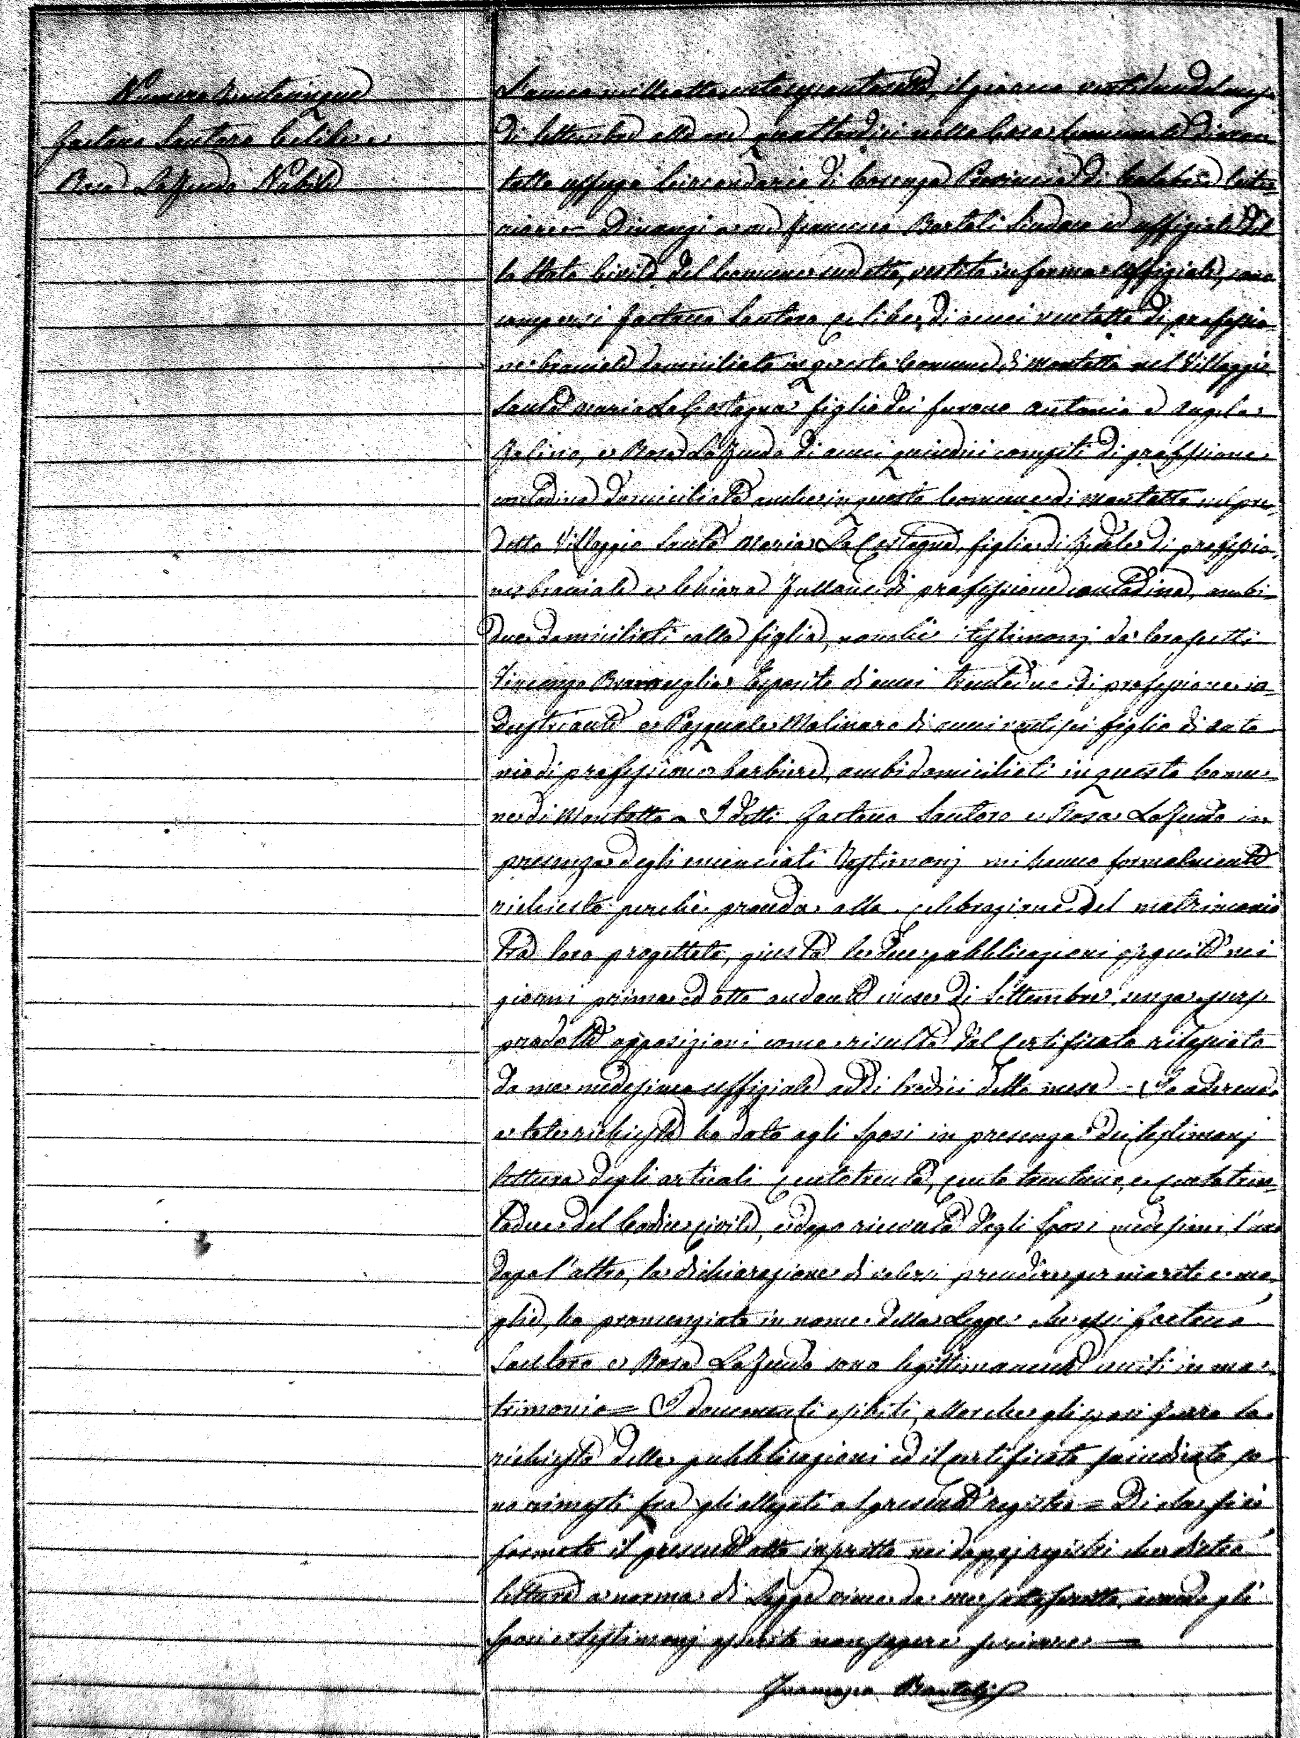 Numero Trentacinque
Gaetano Santoro Celibe e
Rosa LaJuda Nubile
L'anno mille ottocento il giorno del mese
di Settembre alle ore quattordici nella Casa Comunale di Mon
talto uffugo Circondario di Cosenza Provincia di Calabria Cite
riore Dinanzi a me Francesco Bartoli Sindaco ed uffiziale del
lo Stato Civile del Comune sudetto, vestito in forma uffiziale, sono
comparsi Gaetano Santoro celibe, di anni ventotto di professio
ne bracciale domiciliato in questa Comune di Montalto nel Villaggio
Santa Maria La Castagna figlio dei furono Antonio e Angela
e Rosa LaJuda di anni quindici compiti di professione
contadina domiciliata anche in questa Comune di Montalto nel pre
detto Villaggio Santa Maria La Castagna, figlia di Fedele di professio
ne bracciale e Chiara di professione contadina, ambi
due domiciliati colla figlia, nonchè i testimonj da loro scelti
Vincenzo Esposito di anni trentadue di professione in
dustriante e Pasquale Molinaro di anni ventisei figlio di Anto
nio di professione barbiere, ambi domiciliati in questa Comu
ne di Montalto I detti Gaetano Santoro e Rosa LaJuda in
presenza degli enunciati Testimonj mi hanno formalmente
richiesto perchè proceda alla celebrazione del matrimonio
tra loro progettato, giusta le due pubblicazioni eseguite nei
giorni primo ed otto andante mese di Settembre senza
prodotte opposizioni come risulta dal Certificato rilasciato
da me medesimo uffiziale addì tredici detto mese Io aderendo
a tale richiesta ho dato agli sposi in presenza dei testimonj
lettura degli articoli centotrenta, cento trentuno, e centotren
tadue del Codice civile, e dopo ricevuta dagli Sposi medesimi l'uno
dopo l'altro, la dichiarazione di volersi prendere per marito e mo
glie, ho pronunziato in nome della Legge che essi Gaetano
Santoro e Rosa LaJuda sono legittimamente uniti in ma
trimonio = I documenti esibiti, allorchè gli sposi la
richiesta delle pubblicazioni ed il certificato succindicato so
no rimasti fra gli allegati al presente registro = Di che si è
formato il presente atto inscritto nei doppj registri che dietro
lettura a norma di Legge viene da me sottoscritto, avendo gli
Sposi e testimonj asserito non sapere scrivere =
Francesco Bartoli